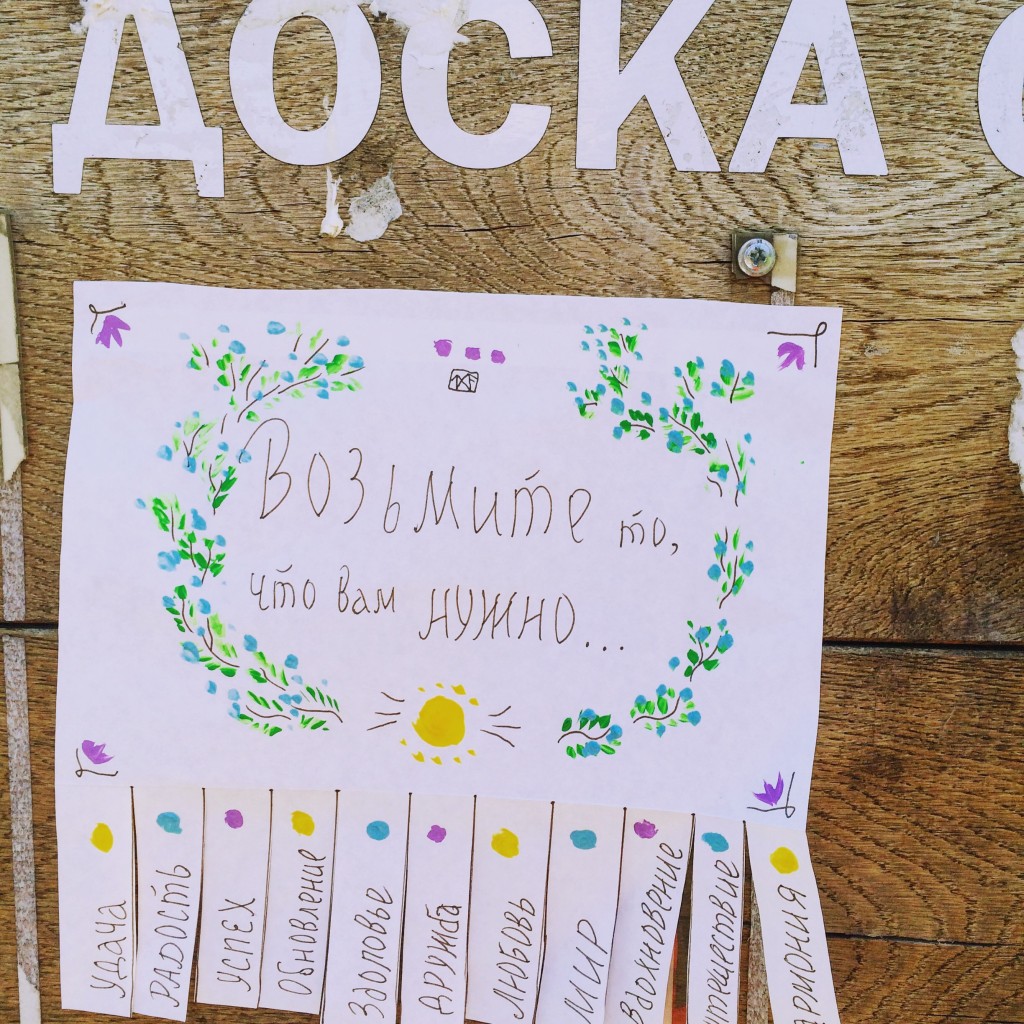 ДОСКА
Возьмите то,
что вам нужно...
УДАЧА
РАДОСТЬ
УСПЕХ
Обновление
Здоровье
ДРУЖБА
ЛЮБОВЬ
МИР
Вдохновение
утешествие
армония